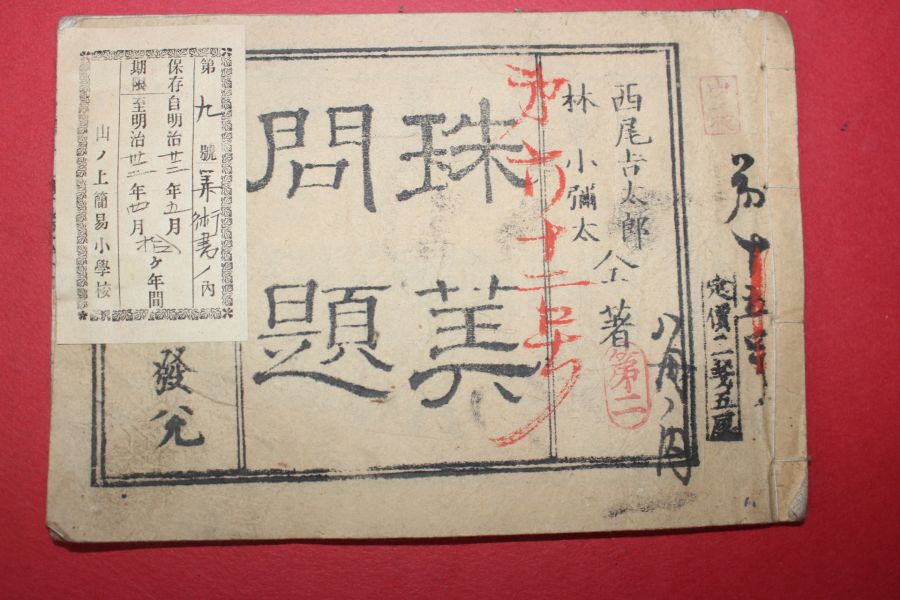 西尾吉太郎
林 小彌太
仝著
珠算
問題
發兌
定價二錢五厘
第二
第十五号
八冊ノ内
第九號算術書ノ内
保存自明治廿三年五月
期限至明治卅三年四月
拾ケ年間
山ノ上簡易小學校